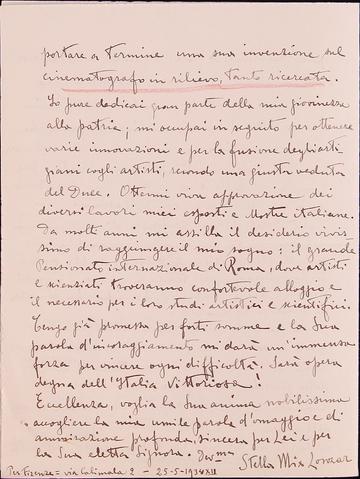 portare a termine una sua invenzione sul
cinematografo in rilievo, tanto ricercata.
Io pure dedicai gran parte della mia giovinezza
alla patria; mi occupai in seguito per ottenere
varie innovazioni e per la fusione degli arti
giani cogli artisti, secondo una giusta veduta
del Duce. Ottenni viva approvazione dei
diversi lavori miei esposti e Mostre italiane.
Da molti anni mi assilla il desiderio vivis
simo di raggiungere il mio sogno: il grande
Pensionato internazionale di Roma, dove artisti
e scienziati troveranno confortevole alloggio e
il necessario per i loro studi artistici e scientifici.
Tengo già promessa per forti somme e la Sua
parola d'incoraggiamento mi darà un'immensa
forza per vincere ogni difficoltà. Sarà opera
degna dell'Italia Vittoriosa!
Eccellenza, voglia la Sua anima nobilissima
accogliere la mia umile parola d'omaggio e di
ammirazione profonda, sincera per Lei e per
la Sua eletta Signora. Dev.ma
Stella Mix
Per Firenze = via Calimala 2 - 25-5-1934 XII